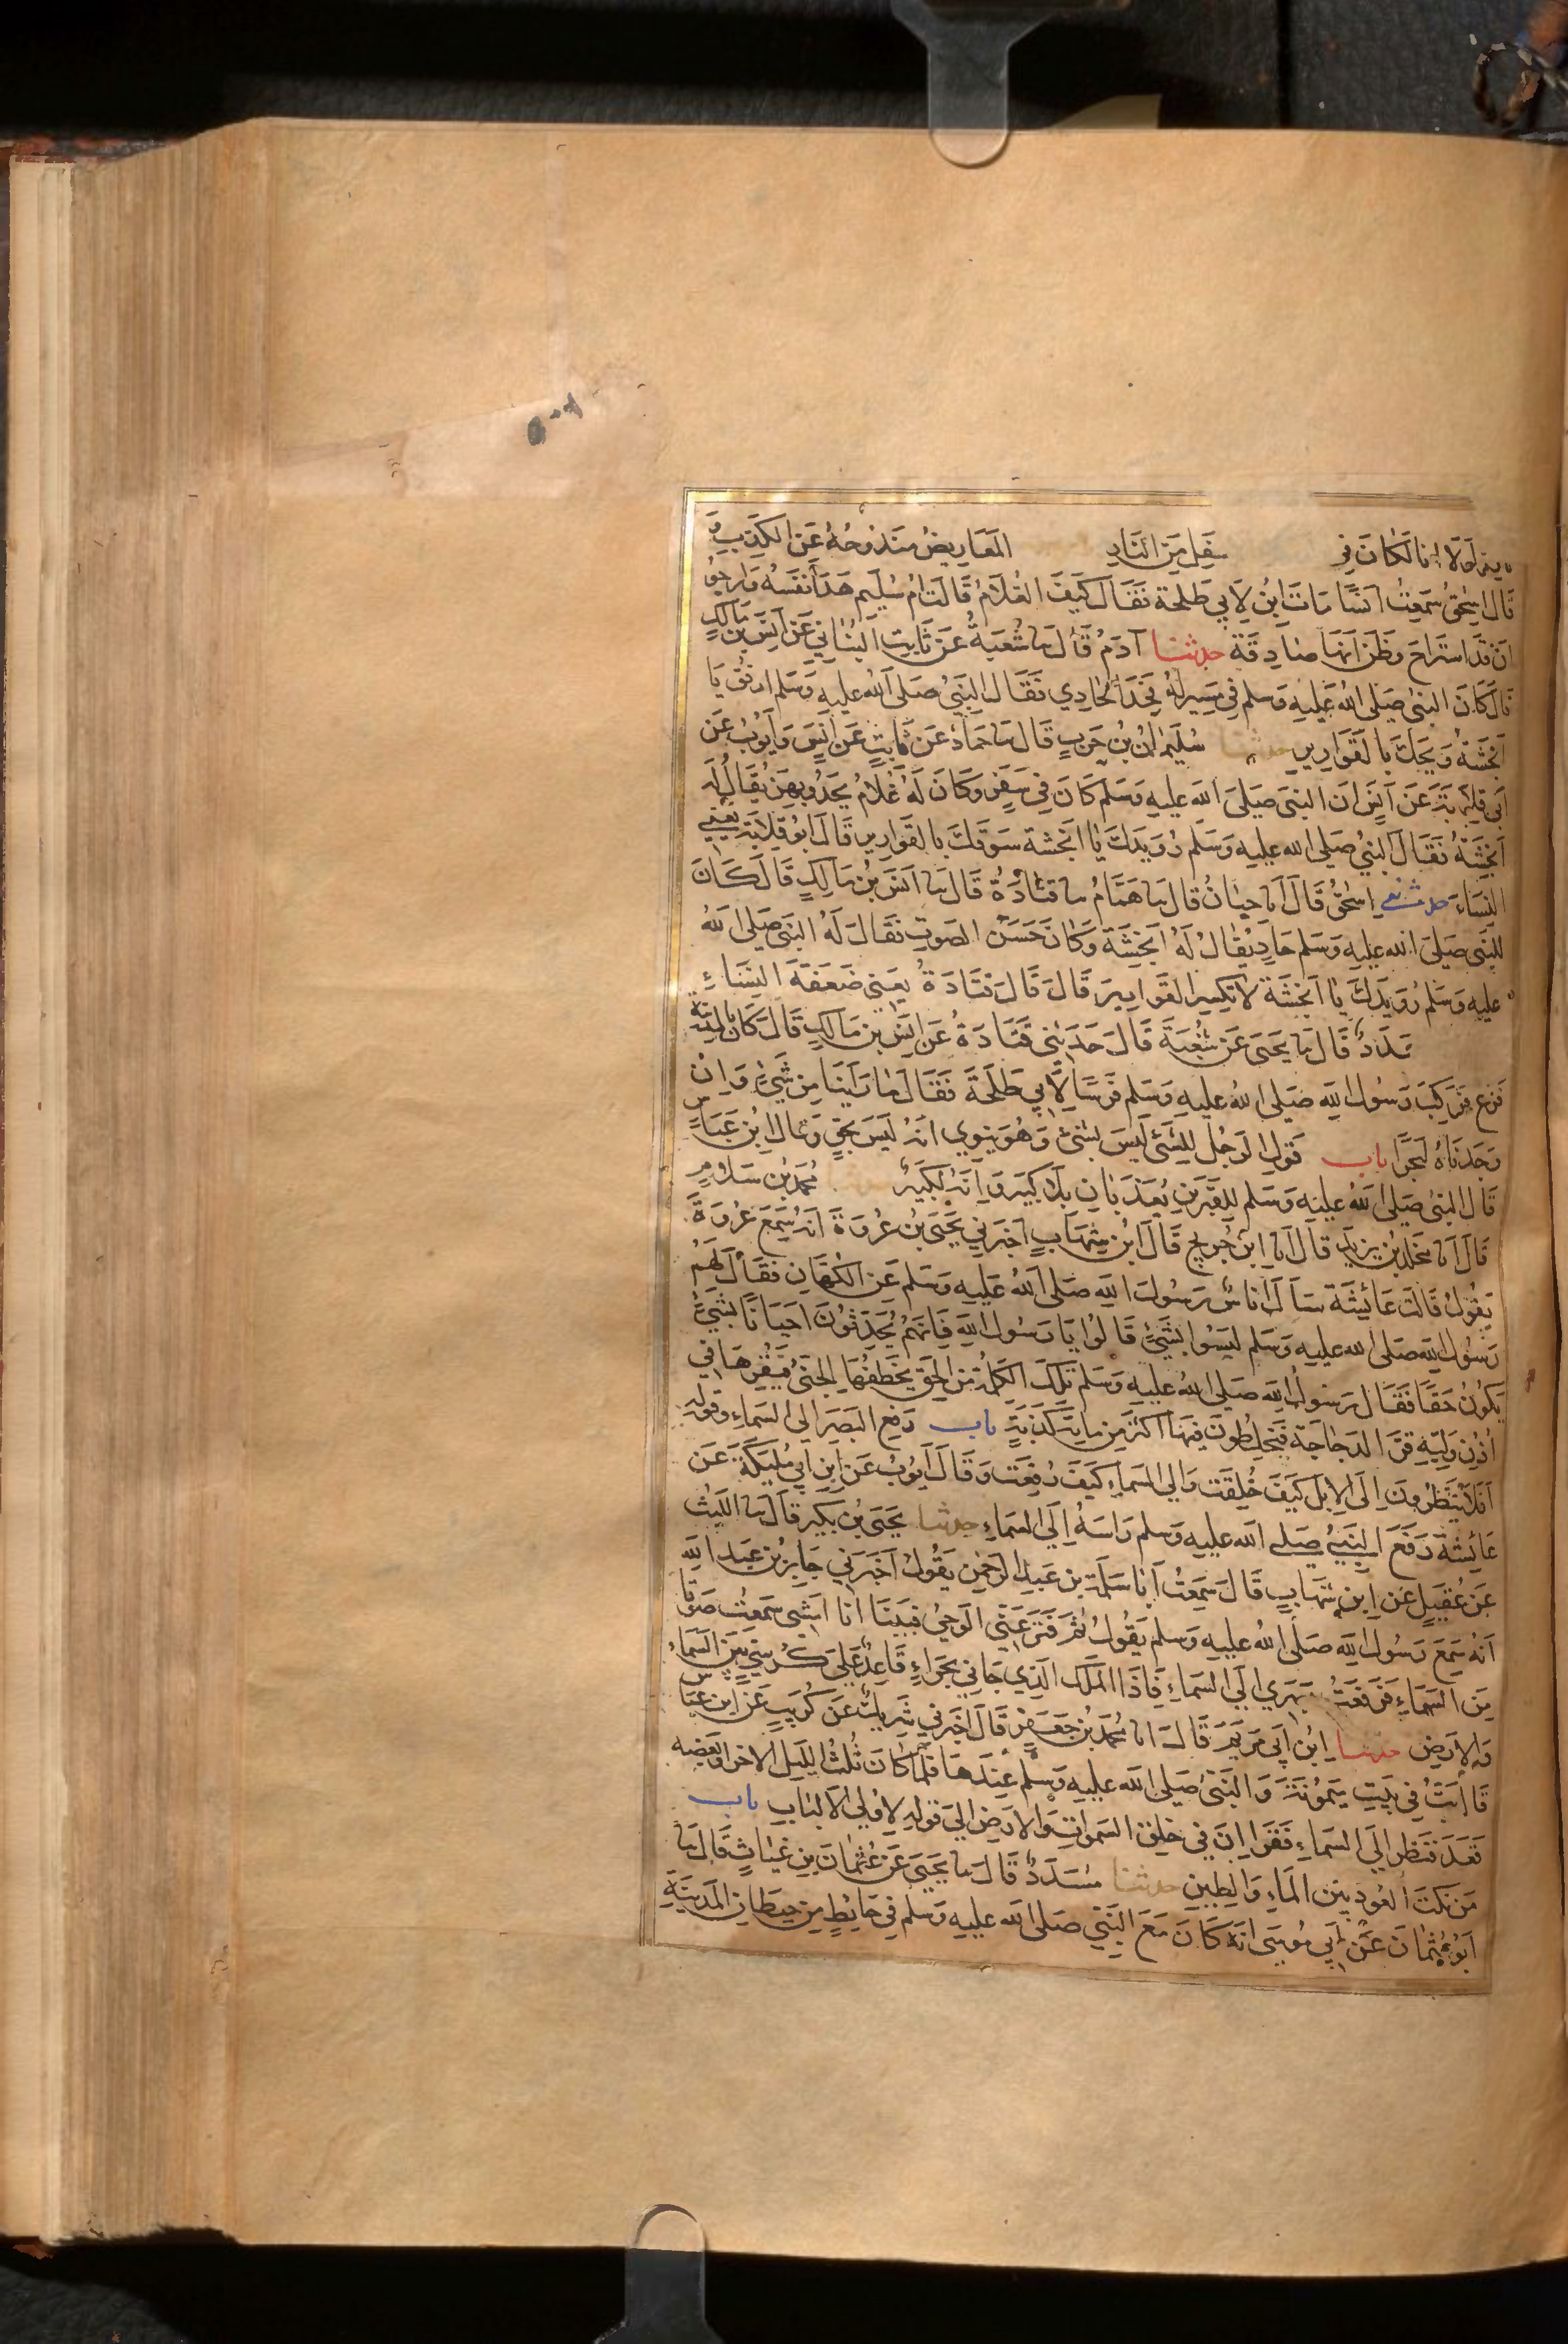 لولا انا لكان في سفل من النار المعاريض مندوحة عن الكذب و
قال اسحق سمعت انسا مات ابن لابي طلحة فقال كيف الغلام قالت ام سليم هدا نفسه وارجو
ان قد استراح وظن انها صادقة حدثنا آدم قال نا شعبة عن ثابت البناني عن انس بن مالك
قال كان النبي صلى الله عليه وسلم في مسير له فحدا الحادي فقال النبي صلى الله عليه وسلم ارفق يا
انجشة ويحك بالقوارير حدثنا سليمان بن حرب قال نا حماد عن ثابت عن انس وايوب عن
ابي قلابة عن انس ان النبي صلى الله عليه وسلم كان في سفر وكان له غلام يحدو بهن يقال له
انجشة فقال النبي صلى الله عليه وسلم رويدك يا انجشة سوقك بالقوارير قال ابو قلابة يعني
النساء حدثني اسحق قال انا حبان قال نا همام نا قتادة قال نا انس بن مالك قال كان
للنبي صلى الله عليه وسلم حاد يقال له انجشة وكان حسن الصوت فقال له النبي صلى الله
عليه وسلم رويدك يا انجشة لا تكسر القوارير قال قال قتادة يعني ضعفة النساء
مسدد قال نا يحيى عن شعبة قال حدثني قتادة عن انس بن مالك قال كان بالمدينة
فزع فركب رسول الله صلى الله عليه وسلم فرسا لابي طلحة فقال ما راينا من شيئ وان
وجدناه لبحرا باب قول الرجل للشئ ليس بشئ وهو ينوي انه ليس بحق وقال ابن عباس
قال النبي صلى الله عليه وسلم للقبرين يعذبان بلا كبير وانه لكبير محمد بن سلام
قال انا مخلد بن يزيد قال انا ابن جريج قال ابن شهاب اخبرني يحيى بن عروة انه سمع عروة
يقول قالت عائشة سال اناس رسول الله صلى الله عليه وسلم عن الكهان فقال لهم
رسول الله صلى الله عليه وسلم ليسوا بشئ قالوا يا رسول الله فانهم يحدثون احيانا بشئ
يكون حقا فقال رسول الله صلى الله عليه وسلم تلك الكلمة من الحق يخطفها الجني فيقرها في
اذن وليه قر الدجاجة فيخلطون فيها اكثر من ماية كذبة باب رفع البصر الى السماء وقوله
افلا ينظرون الى الابل كيف خلقت والى السماء كيف رفعت وقال ايوب عن ابن ابي مليكة عن
عائشة رفع النبي صلى الله عليه وسلم راسه الى السماء حدثنا يحيى بن بكير قال نا الليث
عن عقيل عن ابن شهاب قال سمعت ابا سلمة بن عبد الرحمن يقول اخبرني جابر بن عبد الله
انه سمع رسول الله صلى الله عليه وسلم يقول ثم فتر عني الوحي فبينا انا امشي سمعت صوتا
من السماء فرفعت بصري الى السماء فاذا الملك الذي جاني بحراء قاعد على كرسي بين السماء
والارض حدثنا ابن ابي مريم قال انا محمد بن جعفر قال اخبرني شريك عن كريب عن ابن عباس
قال بت في بيت ميمونة والنبي صلى الله عليه وسلم عندها فلما كان ثلث الليل الاخر او بعضه
قعد فنظر الى السماء فقرا ان في خلق السموات والارض الى قوله لاولي الالباب باب
من نكت العود بين الماء والطين حدثنا مسدد قال نا يحيى عن عثمان بن غياث قال نا
ابو عثمان عن ابي موسى انه كان مع النبي صلى الله عليه وسلم في حائط من حيطان المدينة